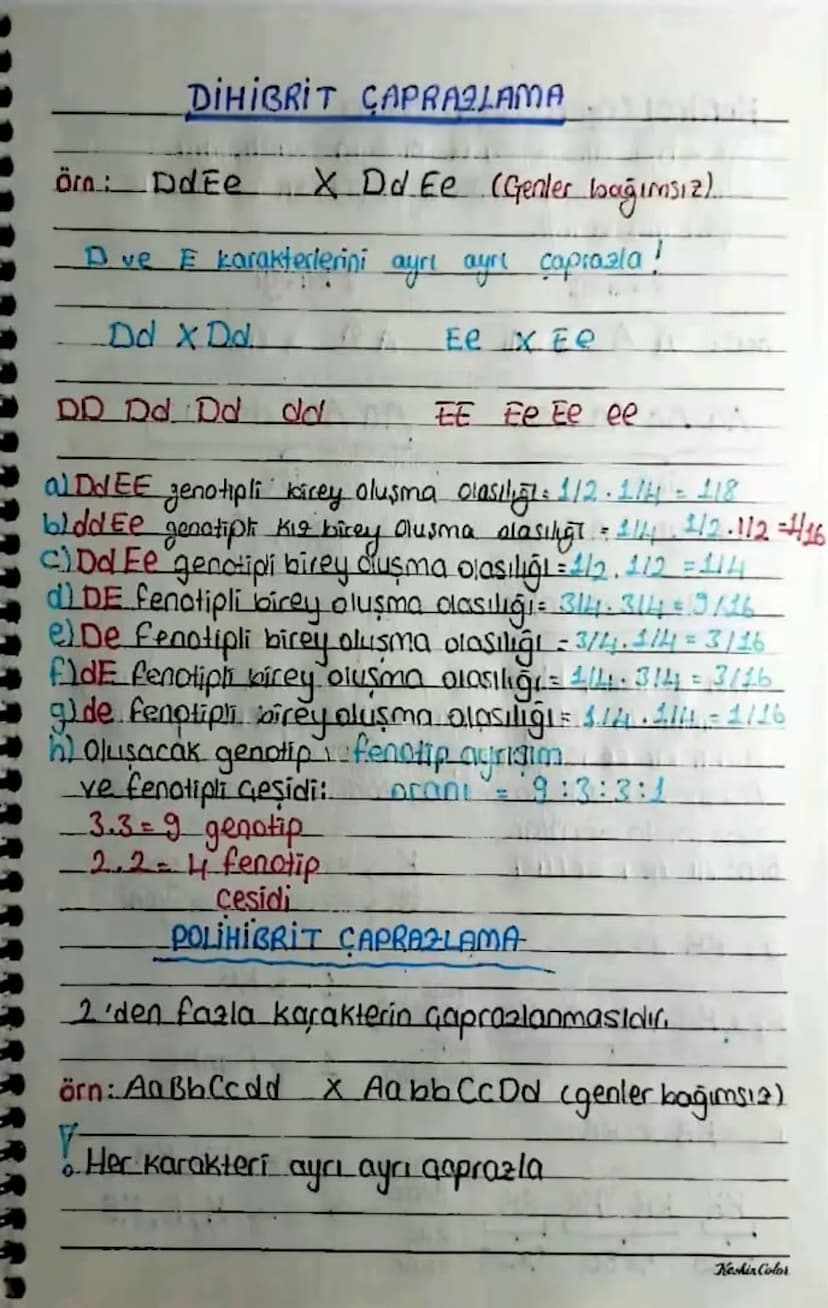 DİHİBRİT ÇAPRAZLAMA
örn: DdEe X DdEe (Genler bağımsız)
D ve E karakterlerini ayrı ayrı çaprazla!
Dd X Dd Ee X Ee
DD Dd Dd dd EE Ee Ee ee
a) DdEE genotipli birey oluşma olasılığı = 1/2 . 1/4 = 1/8
b) ddEe genotipli kız birey oluşma olasılığı = 1/4 . 1/2 . 1/2 = 1/16
c) DdEe genotipli birey oluşma olasılığı = 1/2 . 1/2 = 1/4
d) DE fenotipli birey oluşma olasılığı = 3/4 . 3/4 = 9/16
e) De fenotipli birey oluşma olasılığı = 3/4 . 1/4 = 3/16
f) dE fenotipli birey oluşma olasılığı = 1/4 . 3/4 = 3/16
g) de fenotipli birey oluşma olasılığı = 1/4 . 1/4 = 1/16
h) Oluşacak genotip ı fenotip ayrışım
ve fenotipli çeşidi: oranı = 9:3:3:1
3.3 = 9 genotip
2.2 = 4 fenotip
çeşidi
POLİHİBRİT ÇAPRAZLAMA
2'den fazla karakterin çaprazlanmasıdır.
örn: AaBbCcdd X AabbCcDd (genler bağımsız)
! Her karakteri ayrı ayrı çaprazla
Keskin Color